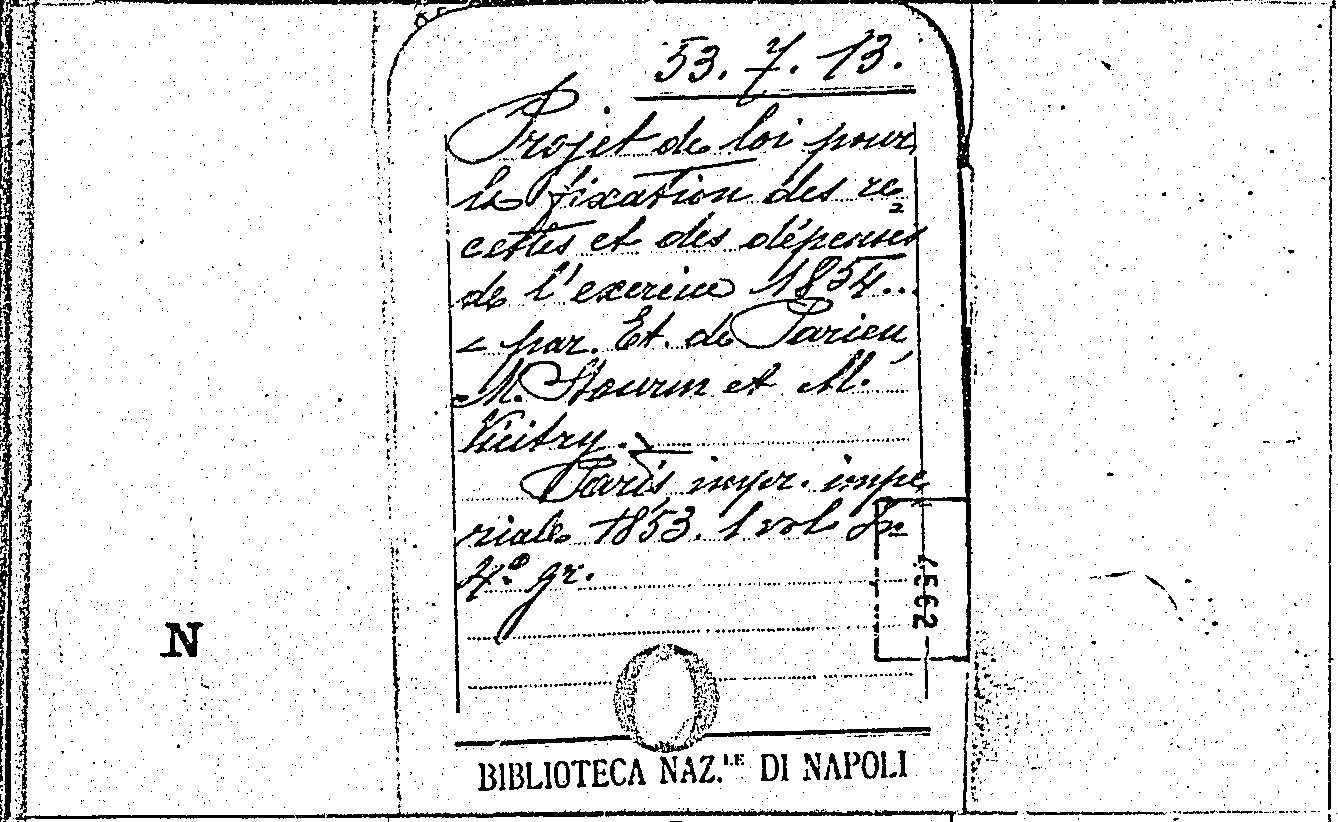 53.7.13.
Projet de loi pour
la fixation des re=
cettes et des dépenses
de l'exercice 1854...
= par. Et. de Parieu,
M. Stourm et M.
Vuitry.
Paris, impr. impé
riale 1853. 1 vol In
4.º gr.
4562
N
BIBLIOTECA NAZ.LE DI NAPOLI